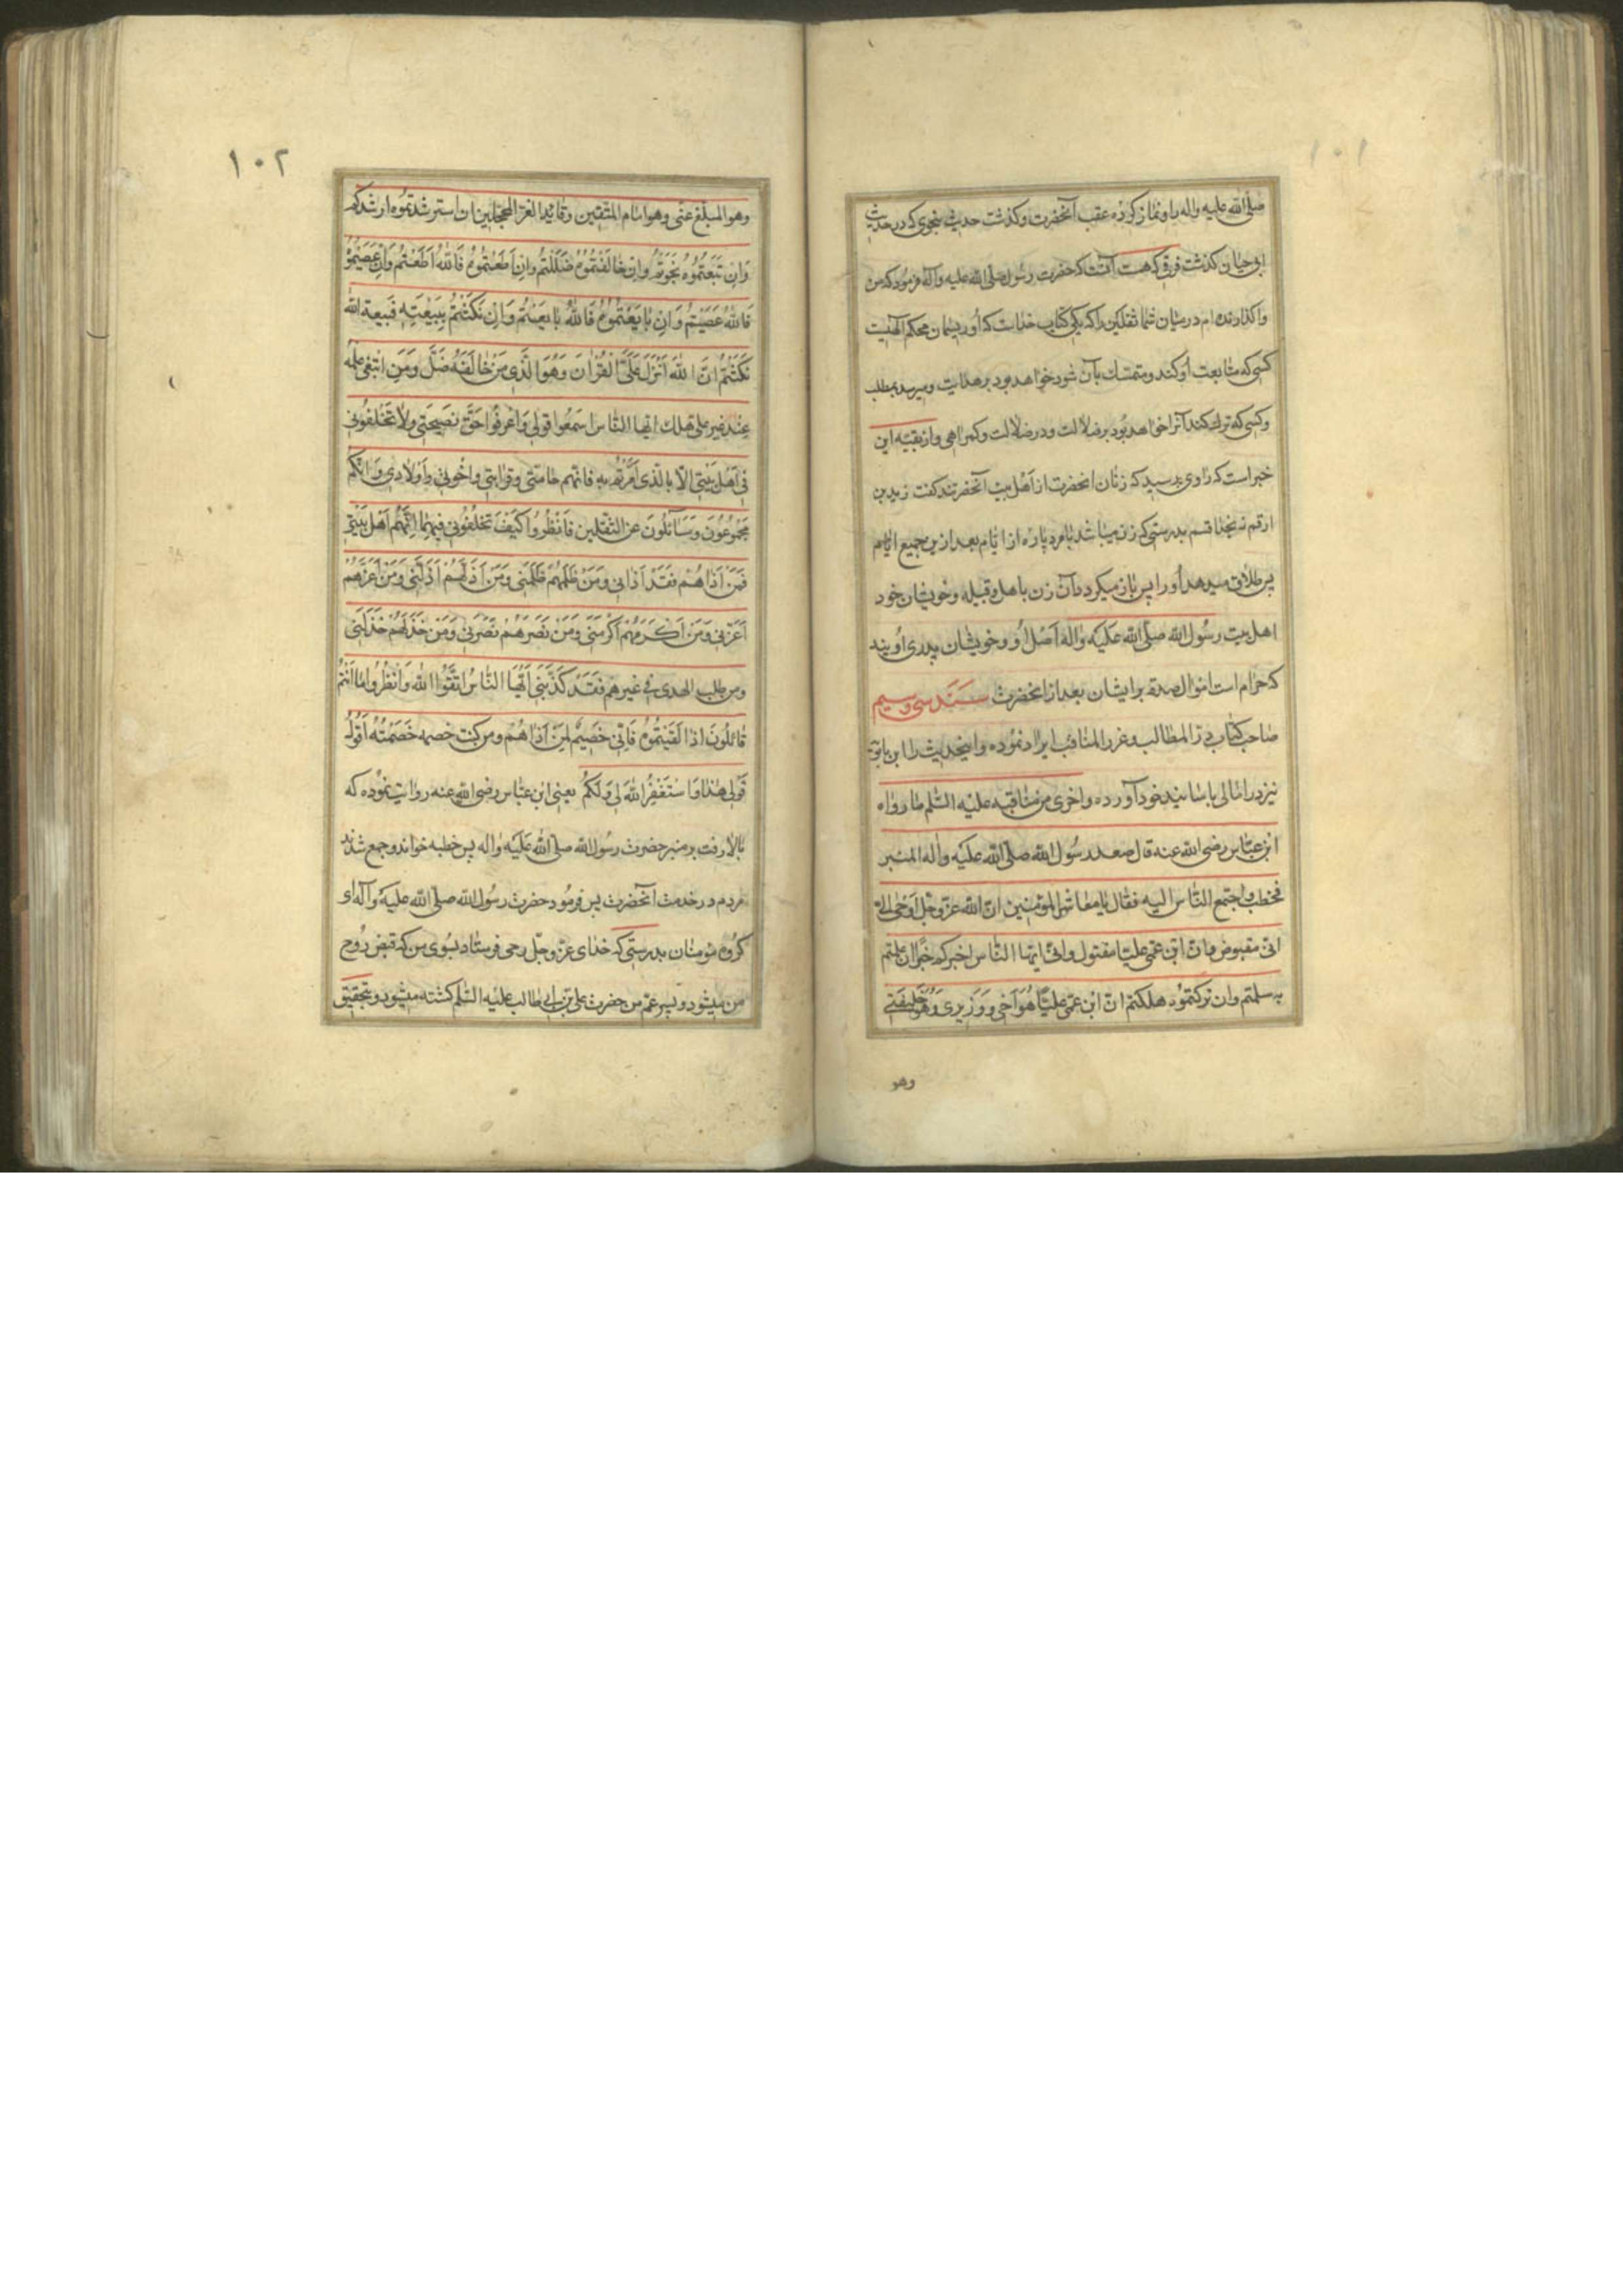 ١٠١
صلی الله علیه واله با او نماز کرده عقب آنحضرت و کذشت حدیث بنحوی که در حدیث
ابی حیان کذشت فرقی که هست آنست که حضرت رسول صلی الله علیه وآله فرمود که من
واکذارنده ام در میان شما ثقلین را که یکی کتاب خداست که او ریسمان محکم الهیست
کسی که متابعت او کند و متمسک بآن شود خواهد بود بر هدایت و میرسد بمطلب
و کسی که ترک کند آنرا خواهد بود بر ضلالت و در ضلالت و کمراهی و از بقیه این
خبر است که راوی پرسید که زنان انحضرت از اهل بیت آنحضرتند کفت زید بن
ارقم نه بخدا قسم بدرستی که زن میباشد با مرد پاره از ایام بعد ازین جمیع ایام
پس طلاق میدهد او را پس باز میکردد آن زن باهل و قبیله و خویشان خود
اهل بیت رسول الله صلی الله علیه واله اصل او و خویشان پدری اویند
که حرام است اموال صدقه بر ایشان بعد از انحضرت سند سی و سیم
صاحب کتاب درّ المطالب و غرر المناقب ایراد نموده و اینحدیث را ابن بابویه
نیز در امالی باسانید خود آورده واخری من مناقبه علیه السّلم ما رواه
ابن عبّاس رضی الله عنه قال صعد رسول الله صلی الله علیه واله المنبر
فخطب واجتمع النّاس الیه فقال یا معاشر المؤمنین انّ الله عزّ وجلّ اوحی الیّ
انّی مقبوض وانّ ابن عمّی علیّا مقتول وانّی ایّها النّاس اخبرکم خبرا ان علمتم
به سلمتم وان ترکتموه هلکتم انّ ابن عمّی علیّا هو اخی و وزیری وهو خلیفتی
وهو
١٠٢
وهو المبلّغ عنّی وهو امام المتّقین وقائد الغرّ المحجّلین ان استرشدتموه ارشدکم
وان تبعتموه نجوتم وان خالفتموه ضللتم وان اطعتموه فالله اطعتم وان عصیتموه
فالله عصیتم وان بایعتموه فالله بایعتم وان نکثتم ببیعته فبیعة الله
نکثتم انّ الله انزل علیّ القران وهو الّذی من خالفه ضلّ ومن ابتغی علمه
عند غیر علی هلک ایها النّاس اسمعوا قولی واعرفوا حقّ نصیحتی ولا تخلفونی
فی اهل بیتی الّا بالّذی امرتم به فانّهم حامتی وقرابتی واخوتی واولادی وانّکم
مجموعون ومسائلون عن الثّقلین فانظروا کیف تخلفونی فیهما انّهم اهل بیتی
فمن اذاهم فقد اذانی ومن ظلمهم ظلمنی ومن اذلّهم اذلّنی ومن اعزّهم
اعزّنی ومن اکرمهم اکرمنی ومن نصرهم نصرنی ومن خذلهم خذلنی
ومن طلب الهدی فی غیرهم فقد کذّبنی ایّها النّاس اتّقوا الله وانظروا ما انتم
قائلون اذا لقیتموه فانّی خصیم لمن اذاهم ومن کنت خصمه خصمته اقول
قولی هذا واستغفر الله لی ولکم یعنی ابن عبّاس رضی الله عنه روایت نموده که
بالا رفت بر منبر حضرت رسول الله صلی الله علیه واله پس خطبه خواند و جمع شدند
مردم در خدمت آنحضرت پس فرمود حضرت رسول الله صلی الله علیه وآله ای
کروه مومنان بدرستی که خدای عزّ وجلّ وحی فرستاد بسوی من که قبض روح
من میشود و پسر عم من حضرت علی بن ابی طالب علیه السّلم کشته میشود و بتحقیق